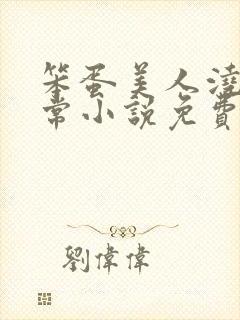 笨蛋美人澆
常小說免費
劉偉偉